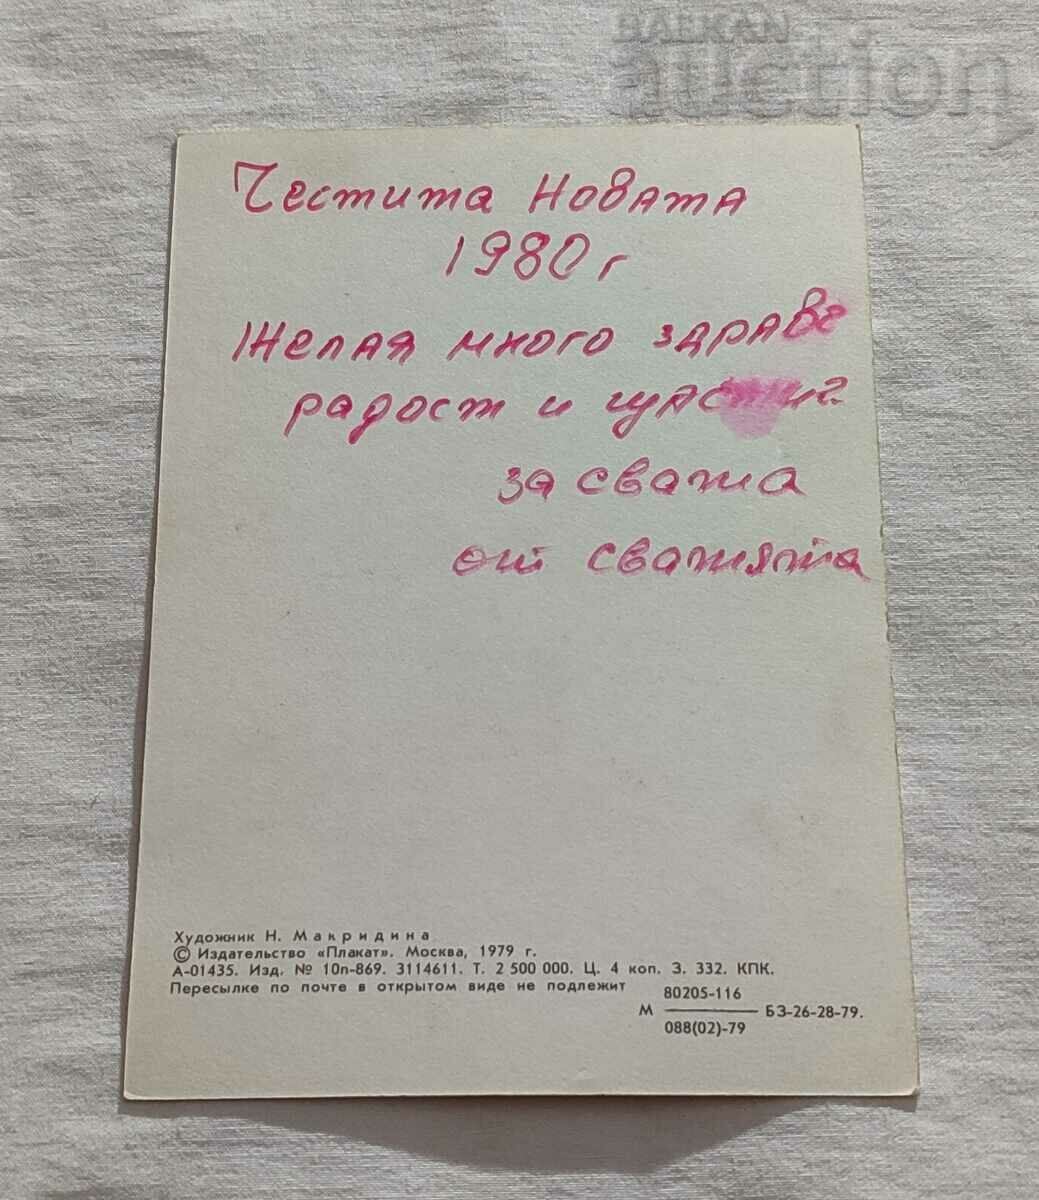 BALKAN
auction
Честита Новата
1980 г
Желая много здраве
радост и щастие
за сватя
от сватята
Художник Н. Макридина
© Издательство «Плакат». Москва, 1979 г.
А-01435. Изд. № 10п-869. 3114611. Т. 2 500 000. Ц. 4 коп. З. 332. КПК.
Пересылке по почте в открытом виде не подлежит
М 80205-116 / 088(02)-79 БЗ-26-28-79.